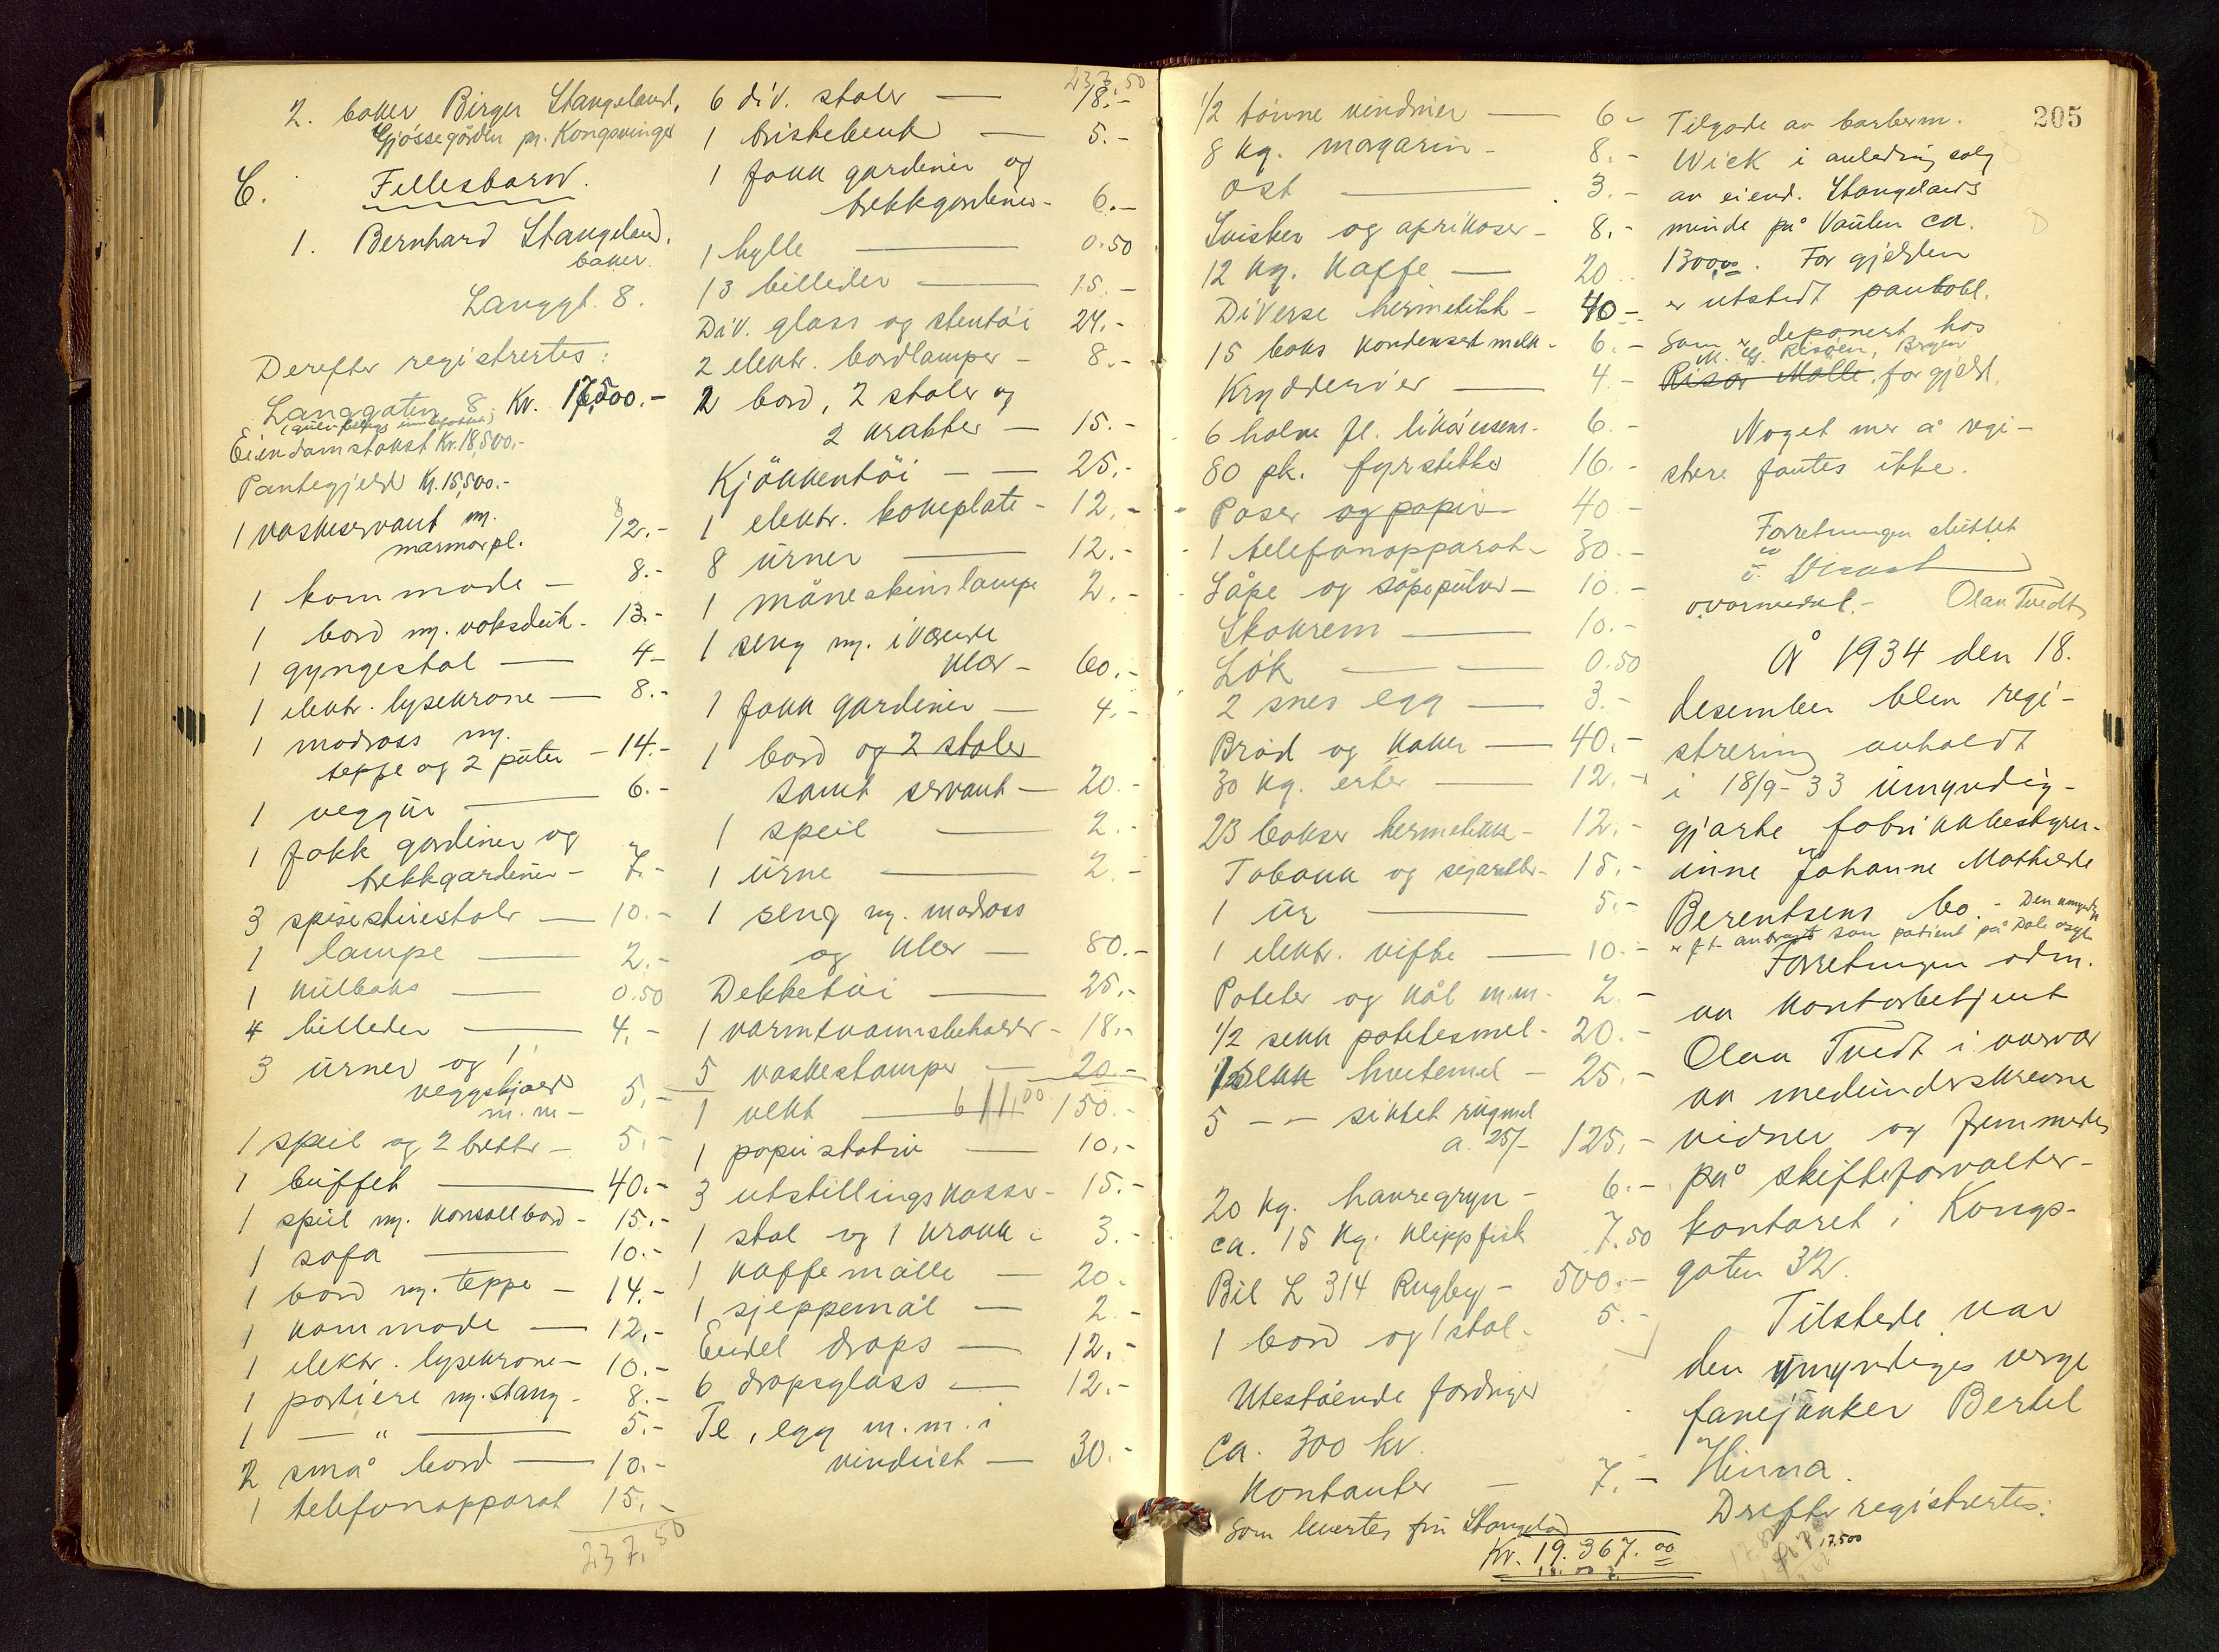 2. baker Birger Stangeland,
Gjössegården pr. Kongsvinger
C. Fellesbarn.
1. Bernhard Stangeland,
baker
Langgt. 8.
Derefter registrertes:
Langgaten 8 Kr. 17,500.-
Eiendomstakst Kr. 18,500,-
Pantegjeld Kr. 15,500.-
1 vaskeservant m.
marmorpl. 12.-
1 kommode - 8.-
1 bord m. voksduk - 13.-
1 gyngestol — 4-
1 elektr. lysekrone — 8.-
1 madrass m.
teppe og 2 puter - 14.-
1 veggur — 6.-
1 fakk gardiner og
trekkgardiner - 7.-
3 spisestuestoler — 10.-
1 lampe — 2.-
1 kulboks — 0.50
4 billeder — 4.-
3 urner og 1
veggskjold
m.m - 5.-
1 speil og 2 bretter - 5.-
1 buffet — 40.-
1 speil m. konsollbord - 15.-
1 sofa — 10.-
1 bord m. teppe - 14.-
1 kommode — 12.-
1 elektr. lysekrone - 10.-
1 portiere m. stang - 8.-
1 — " — 5.-
2 små bord — 10.-
1 telefonapparat 15.-
237,50
237,50
6 div. stoler — 18.-
1 briskebenk — 5.-
1 fakk gardiner og
trekkgardiner - 6.-
1 hylle — 0.50
13 billeder — 15.-
Div. glass og stentöi 24.-
2 elektr. bordlamper - 8.-
2 bord, 2 stoler og
2 krakker — 15.-
Kjökkentöi — 25.-
1 elektr. kokeplate - 12.-
8 urner — 12.-
1 måneskinslampe 2.-
1 seng m. iværende
klær - 60.-
1 fakk gardiner — 4.-
1 bord og 2 stoler
samt servant — 20.-
1 speil — 2.-
1 urne — 2.-
1 seng m. madrass
og klær — 80.-
Dekketöi — 25.-
1 varmtvannsbeholder - 18.-
5 vaskestamper — 20.-
1 vekt — 611,00 150.-
1 papirstativ — 10.-
3 utstillingskasser - 15.-
1 stol og 1 krakk - 3.-
1 kaffemölle — 20.
1 skjeppemål — 2.-
Endel drops — 12.-
6 dropsglass — 12.-
Te, egg m.m. i
vinduet — 30.-
1/2 tönne vindruer — 6-
8 kg. margarin - 8.-
Ost — 3.-
Svisker og aprikoser - 8.-
12 kg. kaffe — 20
Diverse hermetikk - 40-
15 boks kondensert melk - 6.-
Krydderier — 4.-
6 halve fl. liköressens - 6.-
80 pk. fyrstikker 16.-
Poser og papir 40-
1 telefonapparat - 30.-
Såpe og såpepulver - 10.-
Skokrem — 10.-
Lök — 0.50
2 snes egg — 3.-
Bröd og kaker — 40.-
30 kg. erter — 12.-
23 bokser hermetikk - 12.-
Tobakk og sigaretter - 15.-
1 ur — 5.-
1 elektr. vifte — 10.-
Poteter og kål m.m - 2.-
1/2 sekk potetesmel - 20.-
1/2 sekk hvetemel - 25.-
5 -- siktet rugmel
a. 25/- 125.-
20 kg. havregryn - 6.-
ca. 15 kg. klippfisk 7.50
Bil L 314 Rugby - 500.-
1 bord og 1 stol - 5.-
Utestående fordringer
ca. 300 kr.
Kontanter - 7.-
som levertes fru Stangeland
Kr. 19.367.00
205
Tilgode av barberm.
Wick i anledning salg
av eiend. Stangelands
minde på Vaulen ca.
1300.00. For gjelden
er utstedt pantobl.
som er deponert hos
Risør Mölle, for gjeld.
Noget mer å regi-
strere fantes ikke.
Forretningen sluttet
Olav Tvedt
År 1934 den 18.
desember blev regi-
strering avholdt
i 18/9-33 umyndig-
gjorte fabrikkbestyrer-
inne Johanne Mathilde
Berentsens bo. - Den umyndige
er f.t. anbragt som patient på Dale asyl.
Forretningen adm.
av kontorbetjent
Olav Tvedt i nærvær
av medunderskrevne
vidner og fremmedes
på skifteforvalter-
kontoret i Kongs-
gaten 32.
Tilstede var
den umyndiges verge
fanejunker Bertel
Hinna.
Derefter registrertes:
17.500